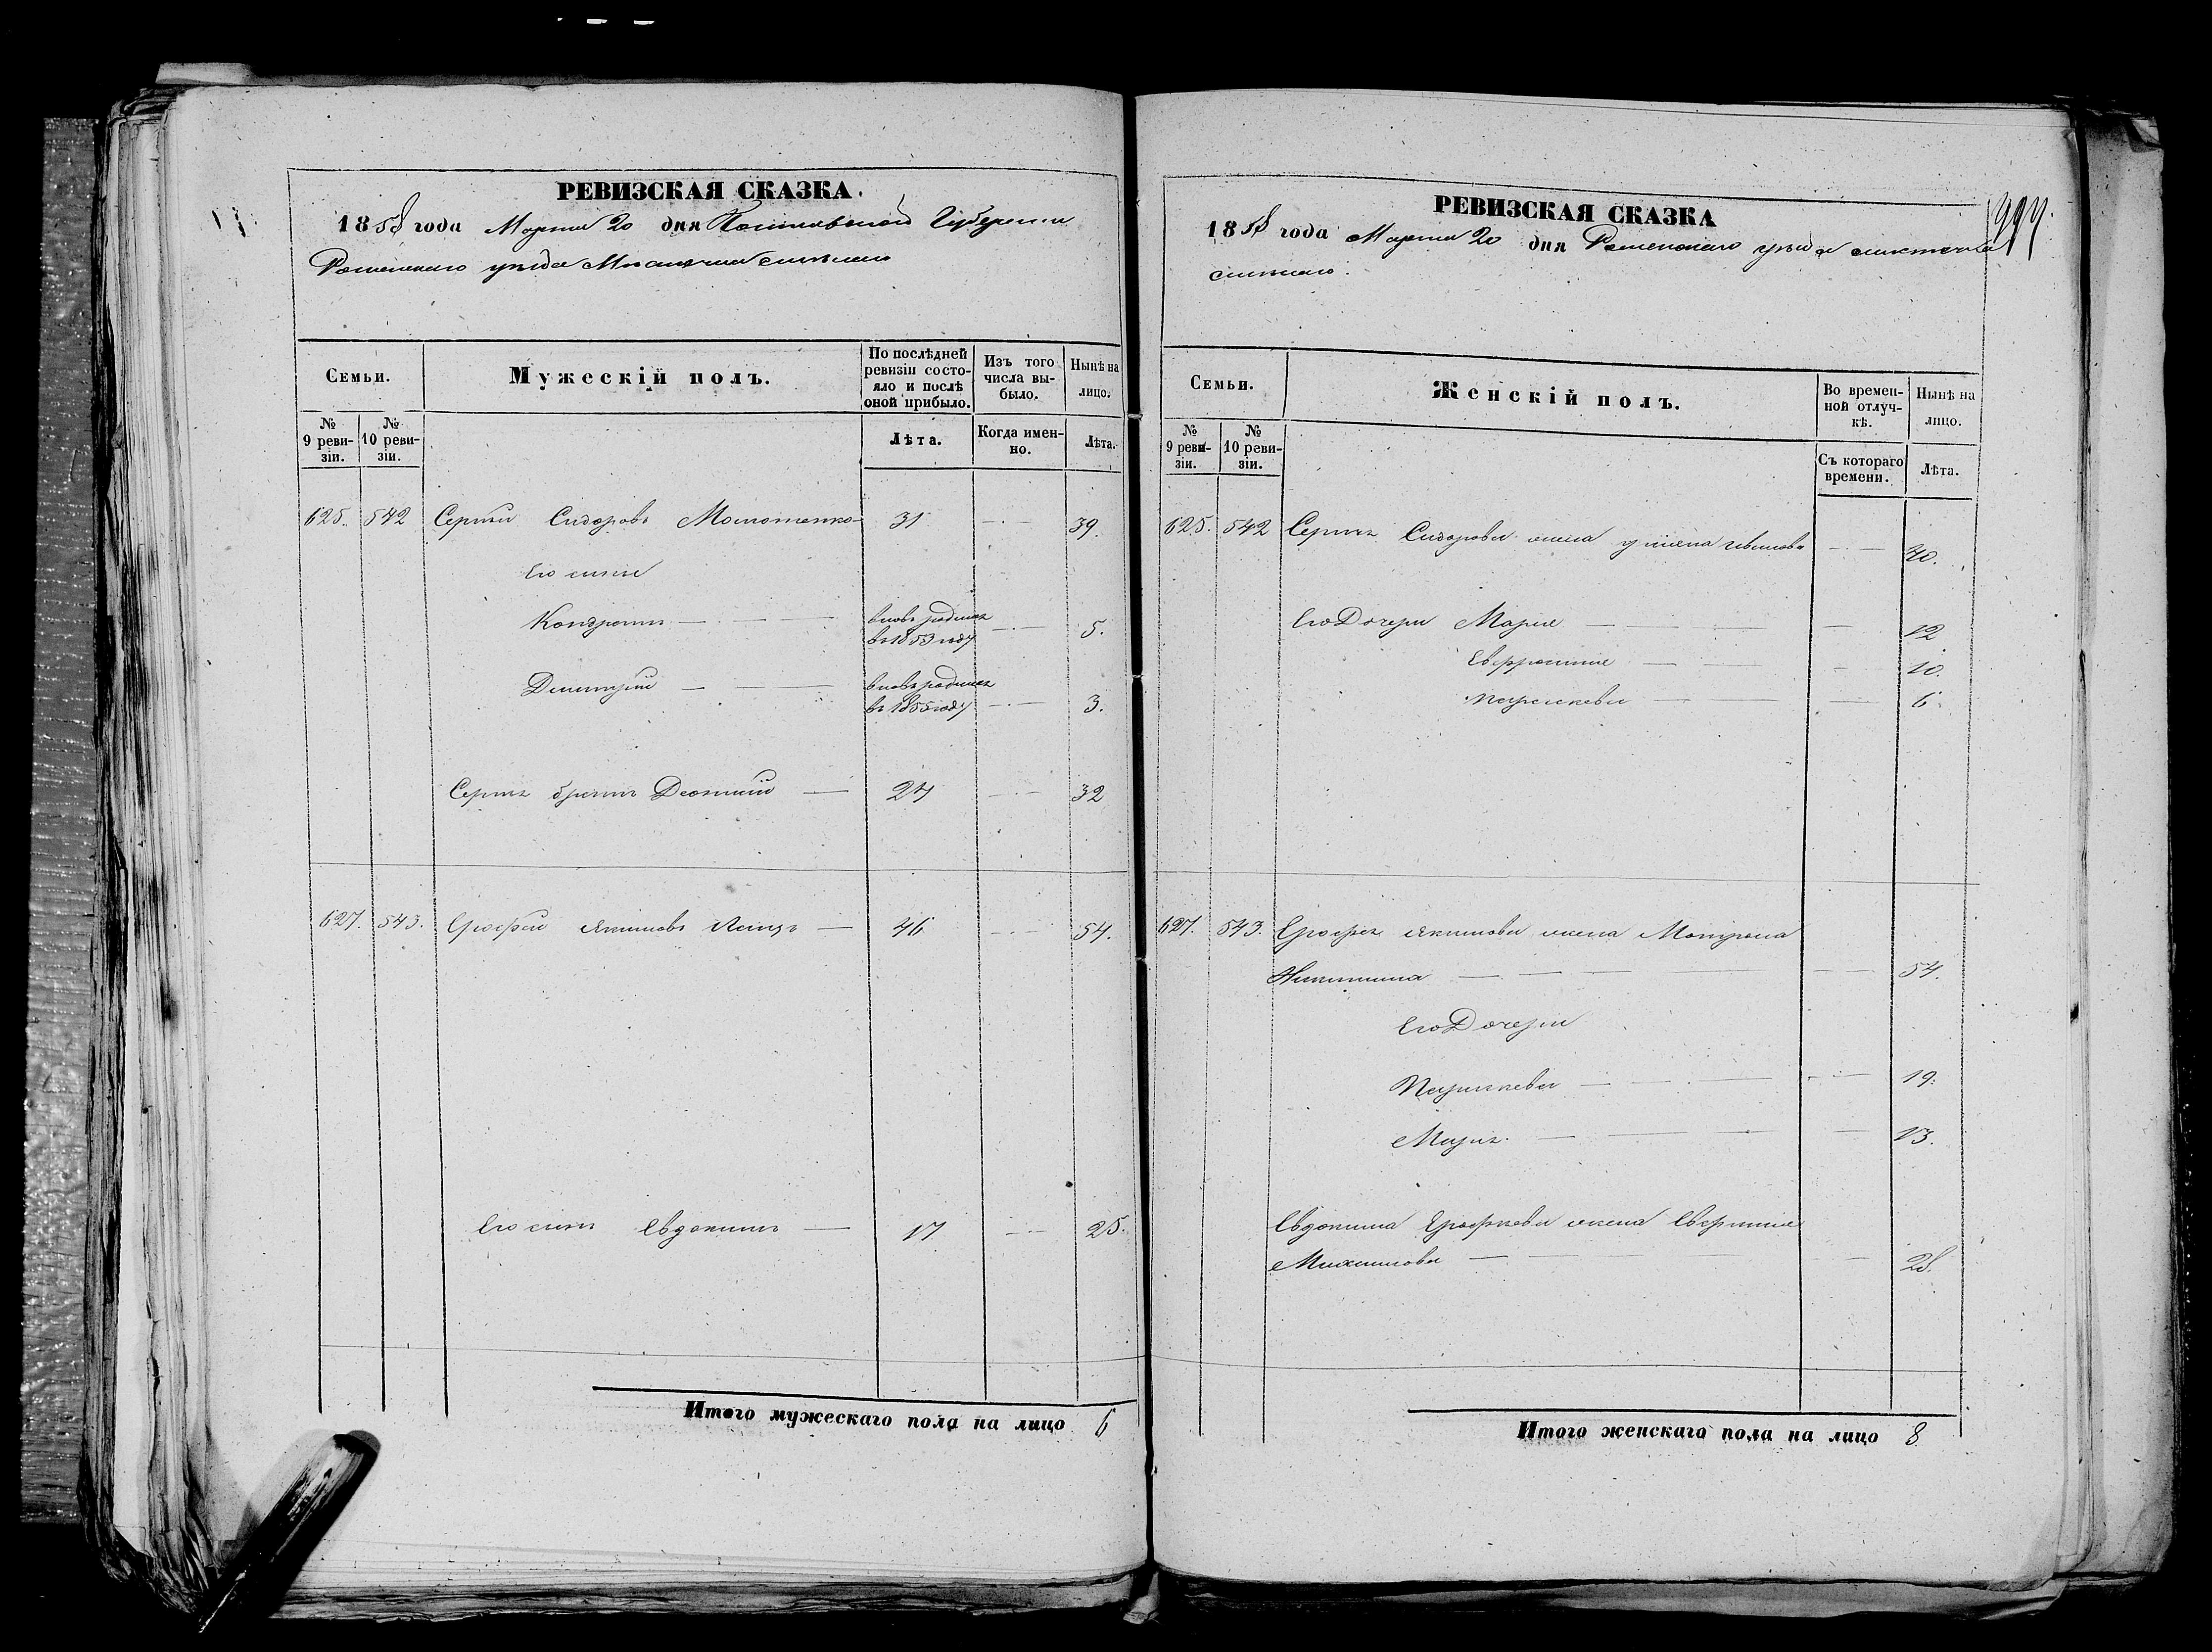 РЕВИЗСКАЯ СКАЗКА.
1858 года Марта 20 дня Полтавской Губернии
Роменскаго уѣзда Мѣстечка Смѣлаго
Семьи.
Мужескій полъ.
По послѣдней ревизіи состояло и послѣ оной прибыло.
Изъ того числа выбыло.
Нынѣ на лицо.
№ 9 ревизіи.
№ 10 ревизіи.
Лѣта.
Когда именно.
Лѣта.
625. 542 Сергѣй Сидоровъ 31 39.
Его сыны
Кондратъ вновь родился въ 1853 году 5.
Дмитрій вновь родился въ 1855 году 3.
Сергѣя братъ 24 32
627. 543. Ерофей Якимовъ 46 54.
Его сынъ Евдокимъ 17 25.
Итого мужескаго пола на лицо 6
РЕВИЗСКАЯ СКАЗКА
1858 года Марта 20 дня Роменскаго уѣзда мѣстечка
Смѣлаго.
Семьи.
Женскій полъ.
Во временной отлучкѣ.
Нынѣ на лицо.
№ 9 ревизіи.
№ 10 ревизіи.
Съ котораго времени.
Лѣта.
625. 542 Сергѣя Сидорова жена Иванова 40.
Его Дочери Марія 12
Евфросинія 10.
Параскева 6.
627. 543. Ерофея Якимова жена Мотрона
Никитина 54.
Его Дочери
Параскева 19.
Марія 13.
Евдокима Ерофеева жена
Михайлова 28.
Итого женскаго пола на лицо 8